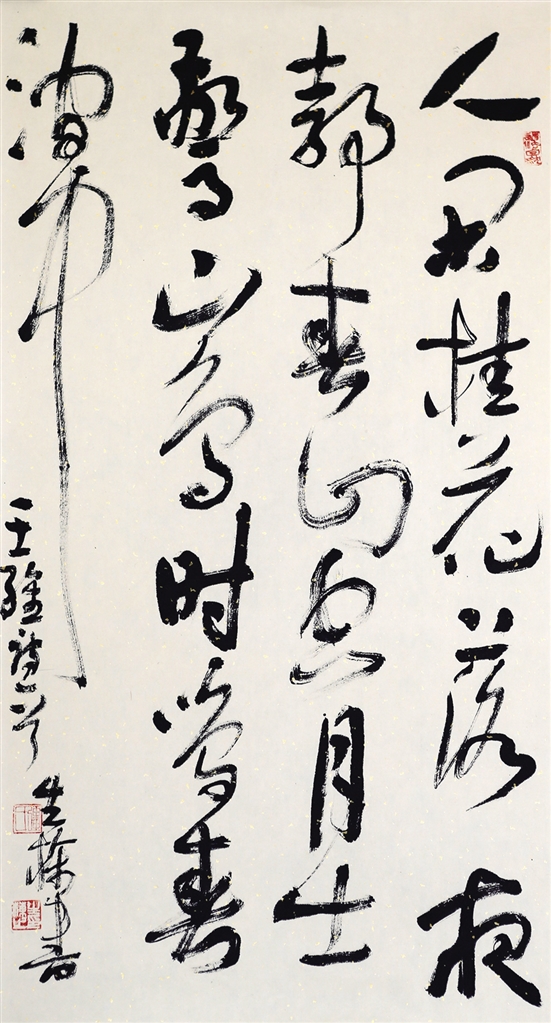 人闲桂花落夜
静春山空月出
驚山鸟时鸣春
涧中
王维诗一首
生
书